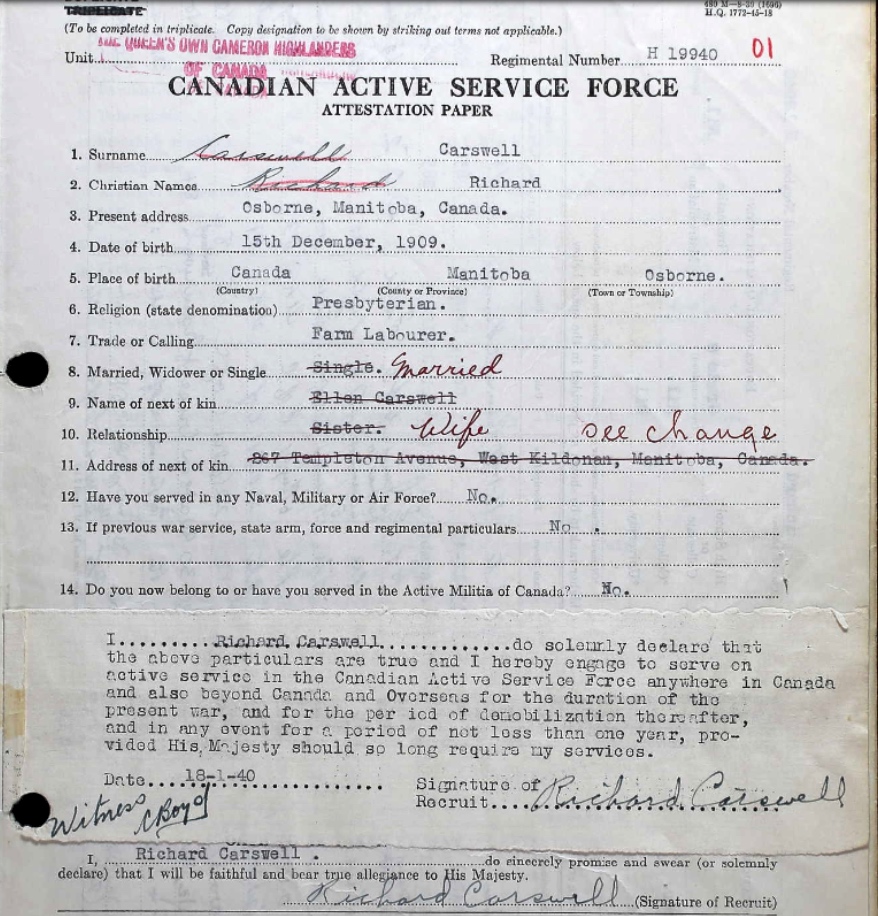 TRIPLICATE
480 M—8-39 (1696)
H.Q. 1772-45-18
(To be completed in triplicate. Copy designation to be shown by striking out terms not applicable.)
THE QUEEN'S OWN CAMERON HIGHLANDERS
Unit
Regimental Number H 19940 01
OF CANADA
CANADIAN ACTIVE SERVICE FORCE
ATTESTATION PAPER
1. Surname Carswell Carswell
2. Christian Names Richard Richard
3. Present address Osborne, Manitoba, Canada.
4. Date of birth 15th December, 1909.
5. Place of birth Canada Manitoba Osborne.
(Country) (County or Province) (Town or Township)
6. Religion (state denomination) Presbyterian.
7. Trade or Calling Farm Labourer.
8. Married, Widower or Single Single. Married
9. Name of next of kin Ellen Carswell
10. Relationship Sister. Wife see change
11. Address of next of kin 867 Templeton Avenue, West Kildonan, Manitoba, Canada.
12. Have you served in any Naval, Military or Air Force? No.
13. If previous war service, state arm, force and regimental particulars No .
14. Do you now belong to or have you served in the Active Militia of Canada? No.
I.........Richard Carswell..............do solemnly declare that
the above particulars are true and I hereby engage to serve on
active service in the Canadian Active Service Force anywhere in Canada
and also beyond Canada and Overseas for the duration of the
present war, and for the per iod of demobilization thereafter,
and in any event for a period of not less than one year, pro-
vided His Majesty should so long require my services.
Date....18-1-40................
Signature of
Recruit.... Richard Carswell
Witness CBoyd
I, Richard Carswell . do sincerely promise and swear (or solemnly
declare) that I will be faithful and bear true allegiance to His Majesty.
Richard Carswell (Signature of Recruit)